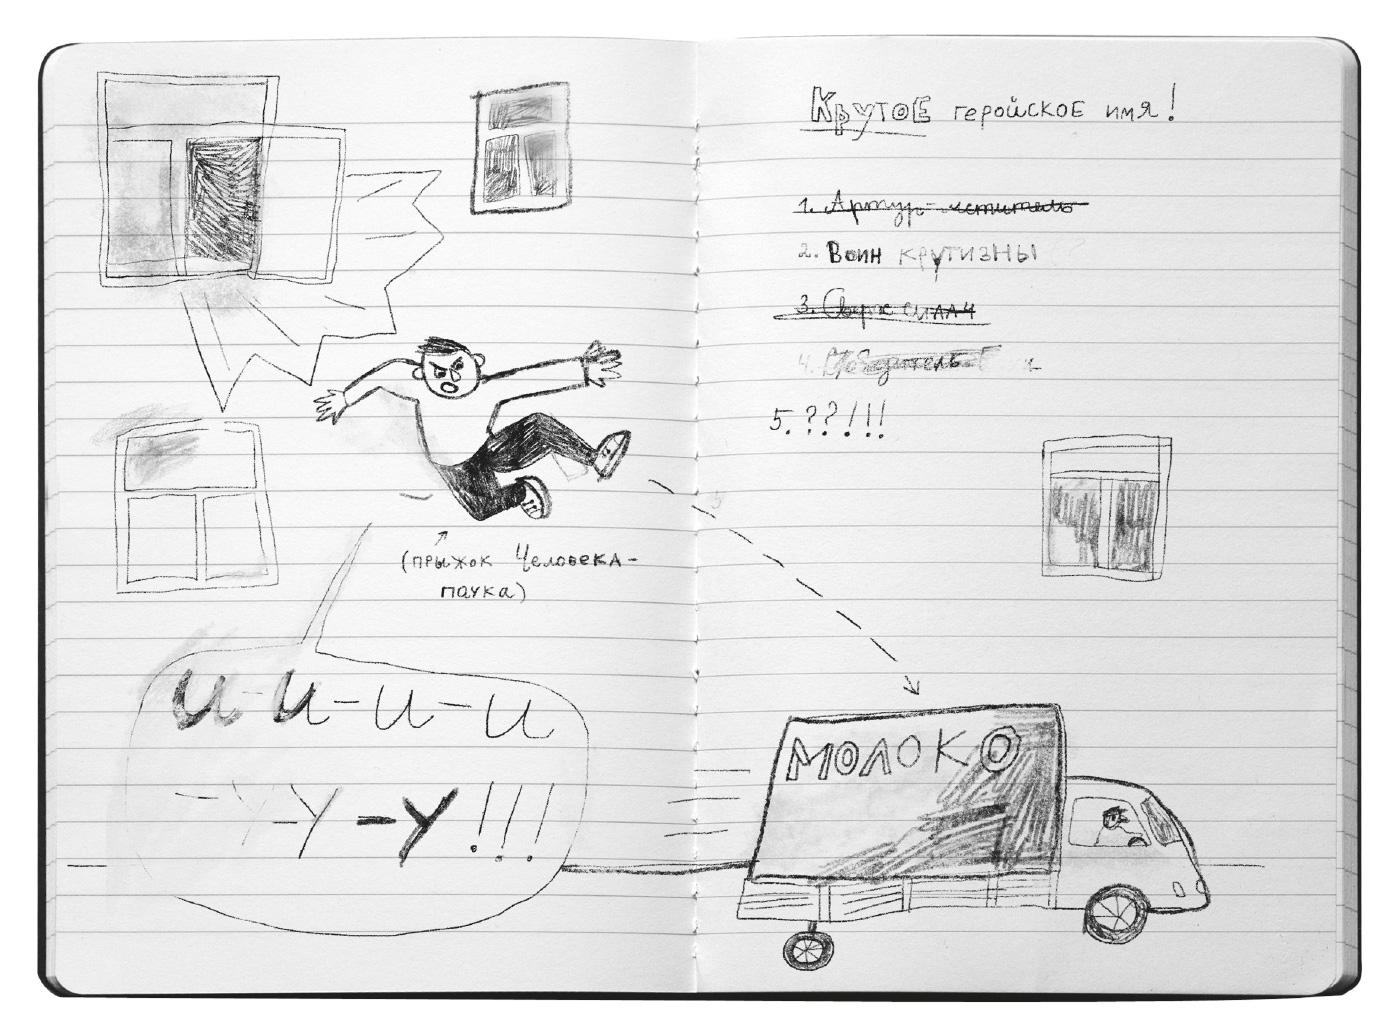 (прыжок Человека-
паука)
и-и-и-и
-у-у-у!!!
Крутое геройское имя!
1. Артур-мститель
2. Воин крутизны
3. Сверхсилач
4. Победитель
5. ??!!!
МОЛОКО